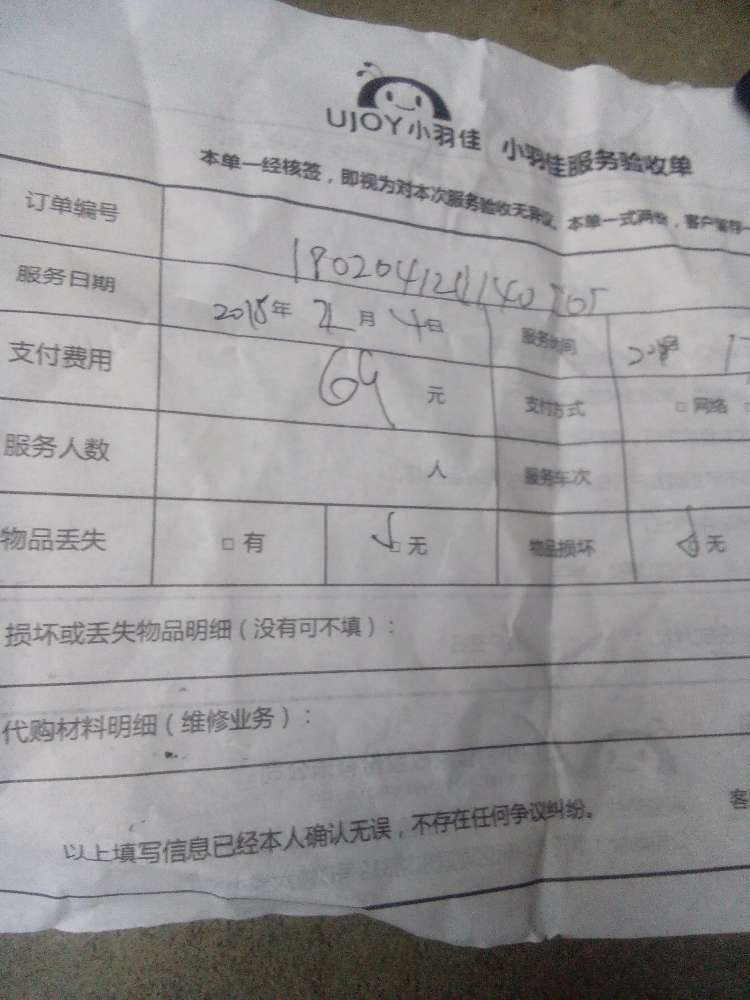 UJOY小羽佳 小羽佳服务验收单
本单一经核签，即视为对本次服务验收无异议。本单一式两份，客户留存一
订单编号
服务日期 2018年 2月 4日 服务时间
支付费用 69 元 支付方式 □ 网络
服务人数 人 服务车次
物品丢失 □ 有 □ 无 物品损坏 □ 无
损坏或丢失物品明细（没有可不填）：
代购材料明细（维修业务）：
客
以上填写信息已经本人确认无误，不存在任何争议纠纷。